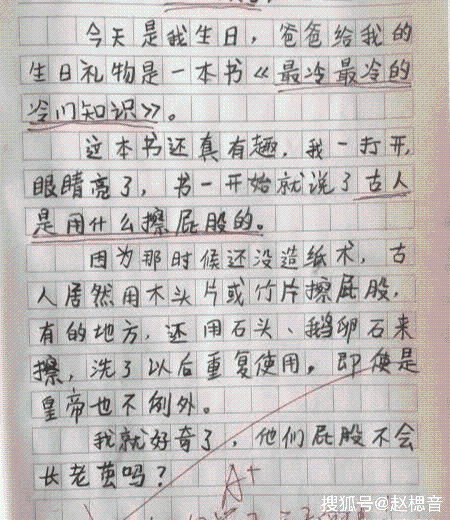 今天是我生日，爸爸给我的
生日礼物是一本书《最冷最冷的
冷门知识》。
这本书还真有趣，我一打开，
眼睛亮了，书一开始就说了古人
是用什么擦屁股的。
因为那时候还没造纸术，古
人居然用木头片或竹片擦屁股，
有的地方，还用石头、鹅卵石来
擦，洗了以后重复使用。即使是
皇帝也不例外。
我就好奇了，他们屁股不会
长老茧吗？
A+
搜狐号@赵楒音